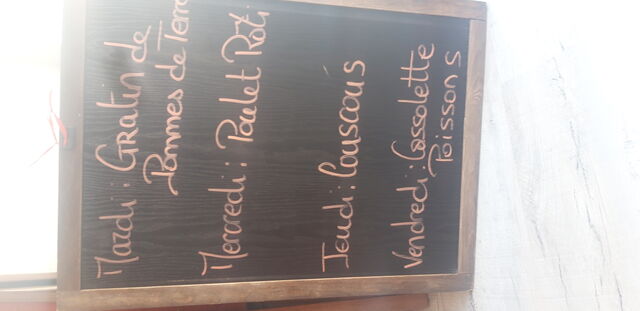 Mardi : Gratin de
Pommes de Terre
Mercredi : Poulet Roti
Jeudi : Couscous
Vendredi : Cassolette
Poissons